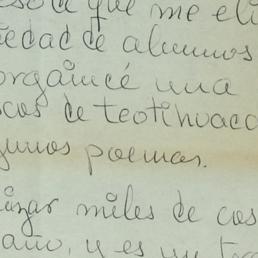 de que me eli
edad de alumnos
organicé una
cos de teotihuaca
gunos poemas.
miles de cos
año, y es un